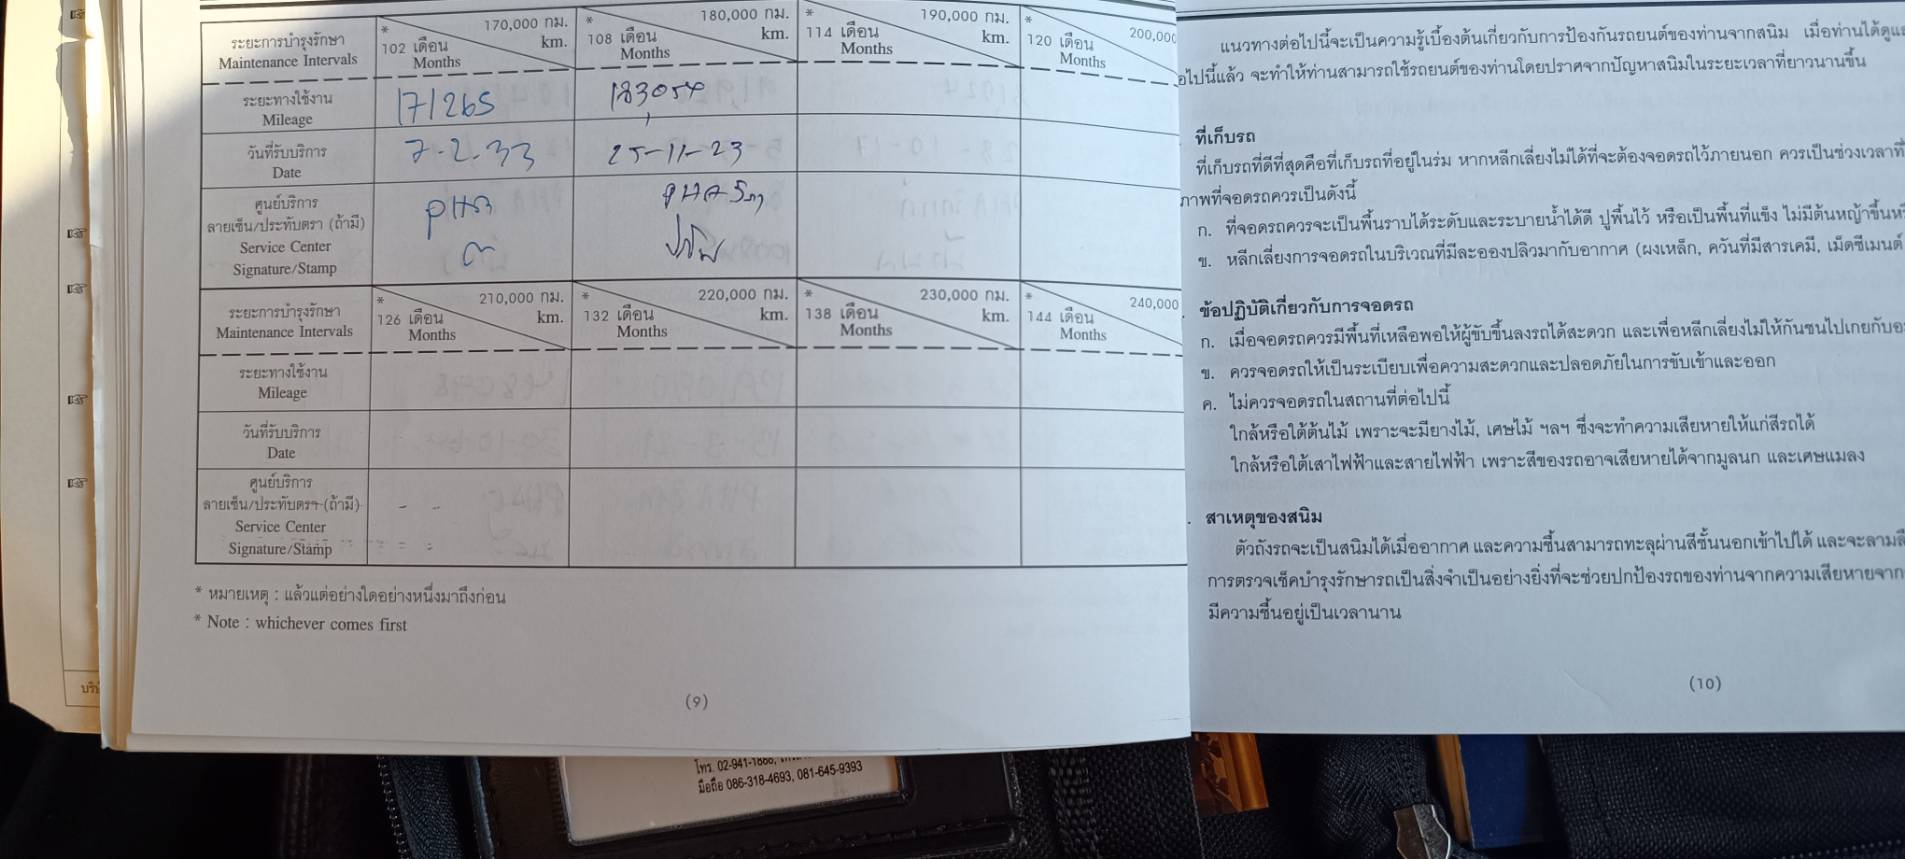 ระยะการบำรุงรักษา
Maintenance Intervals
* 170,000 กม. km.
102 เดือน Months
* 180,000 กม. km.
108 เดือน Months
* 190,000 กม. km.
114 เดือน Months
* 200,000
120 เดือน Months
ระยะทางใช้งาน
Mileage
171265
183054
วันที่รับบริการ
Date
25-11-23
ศูนย์บริการ
ลายเซ็น/ประทับตรา (ถ้ามี)
Service Center
Signature/Stamp
ระยะการบำรุงรักษา
Maintenance Intervals
* 210,000 กม. km.
126 เดือน Months
* 220,000 กม. km.
132 เดือน Months
* 230,000 กม. km.
138 เดือน Months
* 240,000
144 เดือน Months
ระยะทางใช้งาน
Mileage
วันที่รับบริการ
Date
ศูนย์บริการ
ลายเซ็น/ประทับตรา (ถ้ามี)
Service Center
Signature/Stamp
* หมายเหตุ : แล้วแต่อย่างใดอย่างหนึ่งมาถึงก่อน
* Note : whichever comes first
(9)
แนวทางต่อไปนี้จะเป็นความรู้เบื้องต้นเกี่ยวกับการป้องกันรถยนต์ของท่านจากสนิม เมื่อท่านได้ดูแล
อไปนี้แล้ว จะทำให้ท่านสามารถใช้รถยนต์ของท่านโดยปราศจากปัญหาสนิมในระยะเวลาที่ยาวนานขึ้น
ที่เก็บรถ
ที่เก็บรถที่ดีที่สุดคือที่เก็บรถที่อยู่ในร่ม หากหลีกเลี่ยงไม่ได้ที่จะต้องจอดรถไว้ภายนอก ควรเป็นช่วงเวลาที่
ภาพที่จอดรถควรเป็นดังนี้
ก. ที่จอดรถควรจะเป็นพื้นราบได้ระดับและระบายน้ำได้ดี ปูพื้นไว้ หรือเป็นพื้นที่แข็ง ไม่มีต้นหญ้าขึ้น
ข. หลีกเลี่ยงการจอดรถในบริเวณที่มีละอองปลิวมากับอากาศ (ผงเหล็ก, ควันที่มีสารเคมี, เม็ดซีเมนต์
ข้อปฏิบัติเกี่ยวกับการจอดรถ
ก. เมื่อจอดรถควรมีพื้นที่เหลือพอให้ผู้ขับขึ้นลงรถได้สะดวก และเพื่อหลีกเลี่ยงไม่ให้กันชนไปเกยกับ
ข. ควรจอดรถให้เป็นระเบียบเพื่อความสะดวกและปลอดภัยในการขับเข้าและออก
ค. ไม่ควรจอดรถในสถานที่ต่อไปนี้
ใกล้หรือใต้ต้นไม้ เพราะจะมียางไม้, เศษไม้ ฯลฯ ซึ่งจะทำความเสียหายให้แก่สีรถได้
ใกล้หรือใต้เสาไฟฟ้าและสายไฟฟ้า เพราะสีของรถอาจเสียหายได้จากมูลนก และเศษแมลง
สาเหตุของสนิม
ตัวถังรถจะเป็นสนิมได้เมื่ออากาศ และความชื้นสามารถทะลุผ่านสีชั้นนอกเข้าไปได้ และจะลาม
การตรวจเช็คบำรุงรักษารถเป็นสิ่งจำเป็นอย่างยิ่งที่จะช่วยปกป้องรถของท่านจากความเสียหายจาก
มีความชื้นอยู่เป็นเวลานาน
(10)
โทร. 02-941-1888,
มือถือ 086-318-4693, 081-645-9393